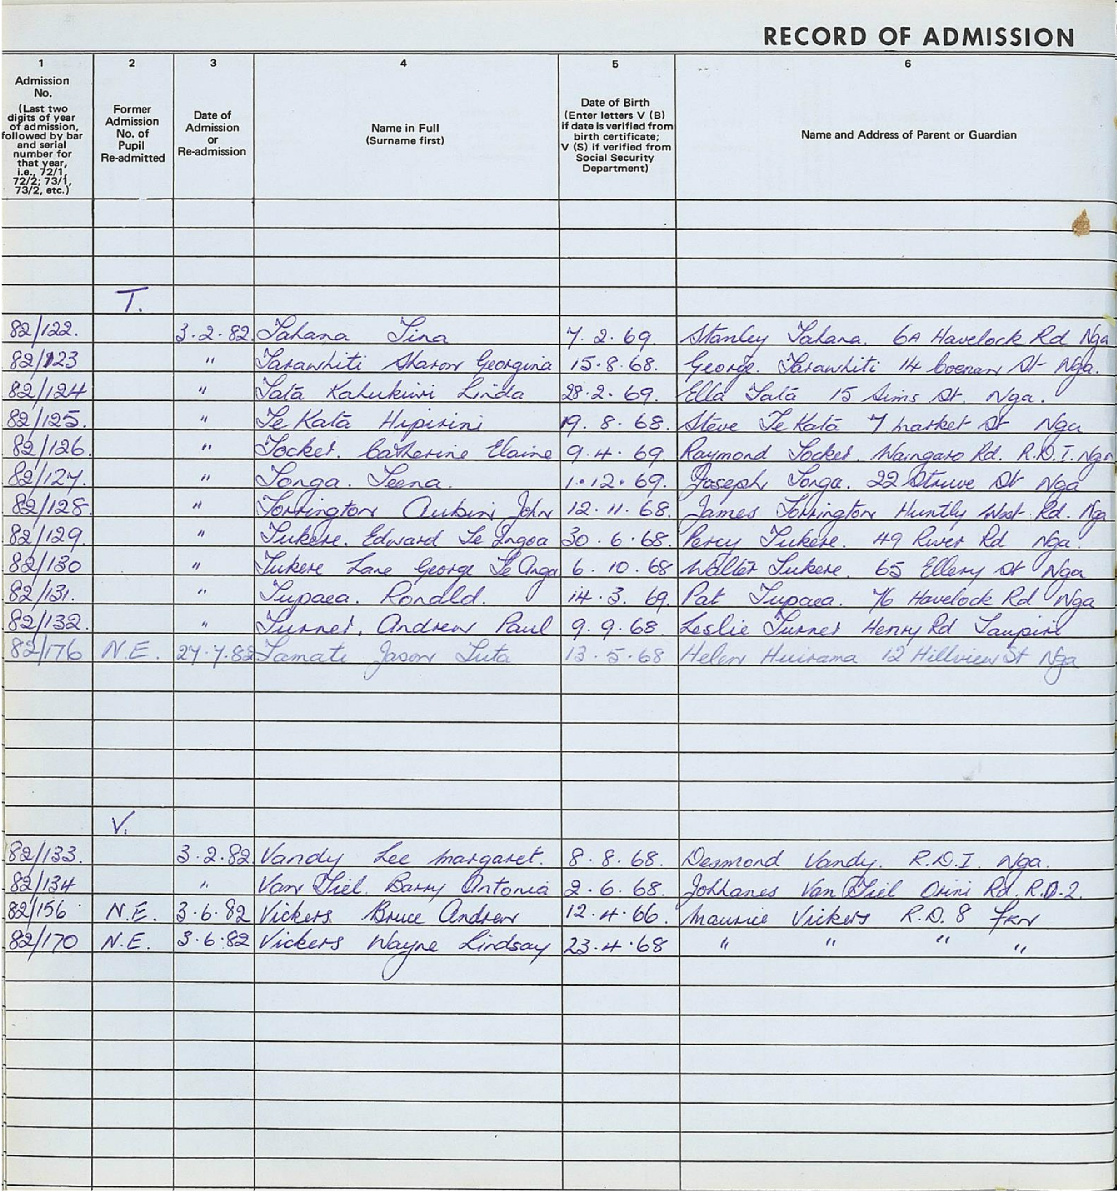 RECORD OF ADMISSION
1 2 3 4 5 6
Admission No. (Last two digits of year of admission, followed by bar and serial number for that year, i.e., 72/1, 72/2; 73/1, 73/2, etc.)
Former Admission No. of Pupil Re-admitted
Date of Admission or Re-admission
Name in Full (Surname first)
Date of Birth (Enter letters V (B) if date is verified from birth certificate; V (S) if verified from Social Security Department)
Name and Address of Parent or Guardian
T.
82/122. 3.2.82 Tahana Tina 7.2.69 Stanley Tahana. 6A Havelock Rd Nga
82/123 " Tarawhiti Sharon Georgina 15.8.68. George. Tarawhiti 14 St Nga.
82/124 " Tata Kahukiwi Linda 28.2.69. Ella Tata 15 Sims St. Nga.
82/125. " Te Kata Hipirini 19.8.68. Steve Te Kata 7 Market St Nga
82/126. " Tocker. Catherine Elaine 9.4.69 Raymond Tocker. Waingaro Rd. R.D.1. Nga
82/127. " Tonga. Teena. 1.12.69. Joseph Tonga. 22 Struve St Nga
82/128. " Torrington Aubin John 12.11.68. James Torrington Huntly West Rd. Nga
82/129. " Tukere. Edward Te Ingoa 30.6.68. Percy Tukere. 49 River Rd Nga.
82/130 " Tukere Lane George Te Anga 6.10.68 Walter Tukere. 65 Ellery St Nga
82/131. " Tupaea. Ronald. 14.3.69. Pat Tupaea. 76 Havelock Rd Nga
82/132. " Turner. Andrew Paul 9.9.68 Leslie Turner Henry Rd Taupiri
82/176 N.E. 27.7.82 Tamati Jason Tuta 13.5.68 Helen Huirama 12 Hillview St Nga
V.
82/133. 3.2.82. Vandy Lee Margaret. 8.8.68. Desmond Vandy. R.D.1. Nga.
82/134 " Van Tiel. Barry Antonia 2.6.68. Johhanes Van Tiel Orini Rd. R.D.2.
82/156 N.E. 3.6.82 Vickers Bruce Andrew 12.4.66. Maurice Vickers R.D.8
82/170 N.E. 3.6.82 Vickers Wayne Lindsay 23.4.68 " " " "